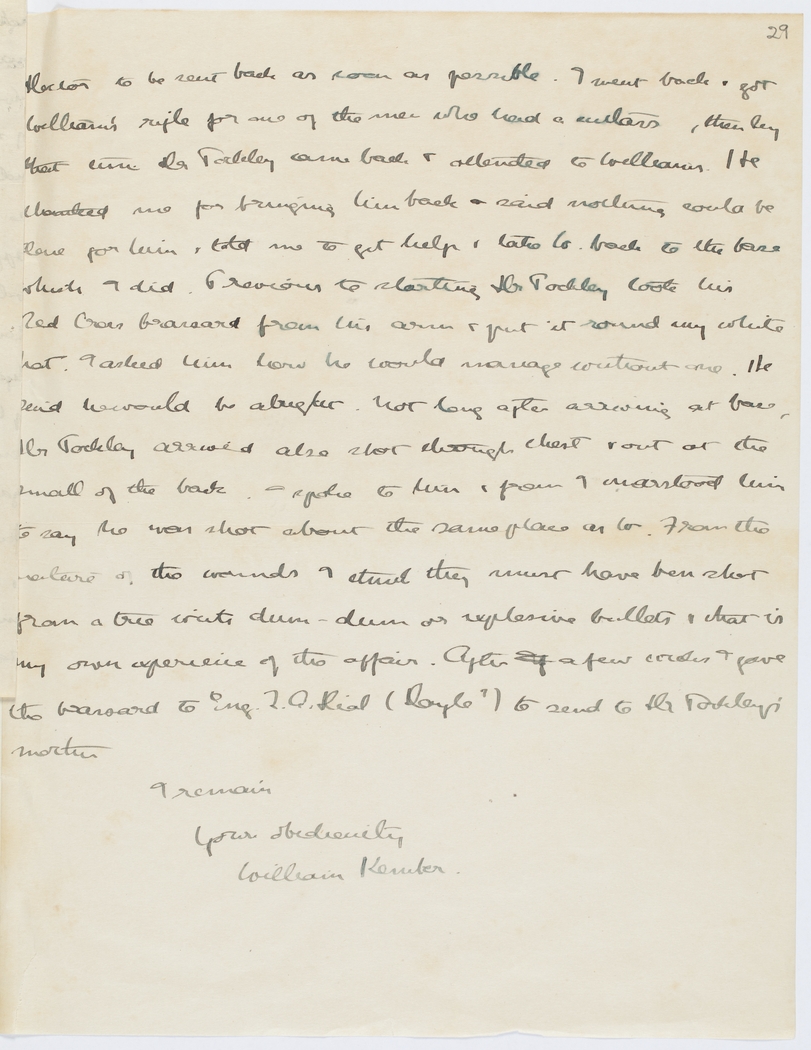 29
Doctor to be sent back as soon as possible. I went back & got
Williams' rifle for one of the men who had a cutlass, then by
that time Dr Pockley came back & attended to Williams. He
thanked me for bringing him back & said nothing could be
done for him, & told me to get help & take W. back to the base
which I did. Previous to starting Dr Pockley took his
Red Cross brassard from his arm & put it round my white
hat. I asked him how he would manage without one. He
said he would be alright. Not long after arriving at base,
Dr Pockley arrived also shot through chest & out at the
small of the back. I spoke to him & from I understood him
to say he was shot about the same place as W. From the
nature of the wounds I think they must have ben shot
from a tree with dum-dum or explosive bullets & that is
my own experience of the affair. After a few weeks I gave
the brassard to Eng. Reid to send to Dr Pockley's
mother
I remain
Your obediently
William Kember.